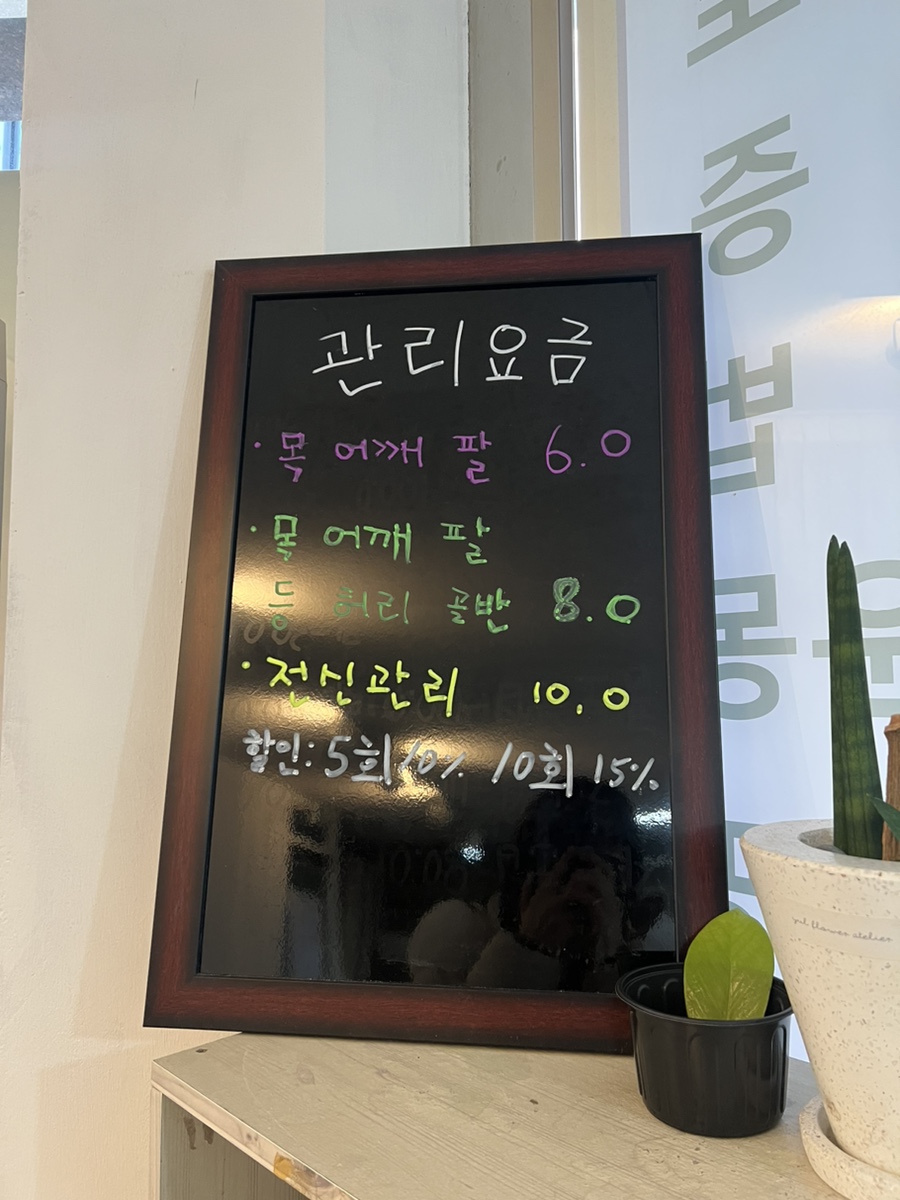 관리요금
· 목 어깨 팔 6.0
· 목 어깨 팔
등 허리 골반 8.0
· 전신관리 10.0
할인: 5회 10% 10회 15%